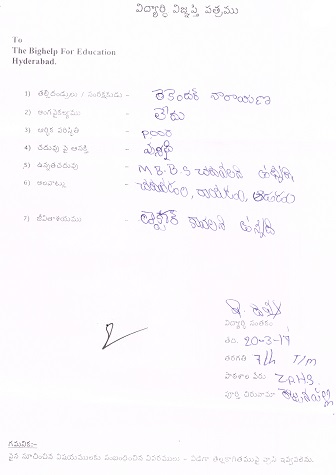 విద్యార్థి విజ్ఞప్తి పత్రము
To
The Bighelp For Education
Hyderabad.
1) తల్లిదండ్రులు / సంరక్షకుడు - నారాయణ
2) అంగవైకల్యము - లేదు
3) ఆర్థిక పరిస్థితి - poor
4) చదువు పై ఆసక్తి -
5) ఉన్నతచదువు - M.B.B.S చదవాలని ఉన్నది
6) అలవాట్లు - చదవడం, రాయడం, ఆడడం
7) జీవితాశయము - డాక్టర్ కావాలని ఉన్నది
విద్యార్థి సంతకం
తేది. 20-3-17
తరగతి 7th T/m
పాఠశాల పేరు ZPHS.
పూర్తి చిరునామా
గమనిక:-
పైన సూచించిన విషయములకు సంబంధించిన వివరములు - విడిగా తెల్లకాగితముపై వ్రాసి ఇవ్వవలెను.